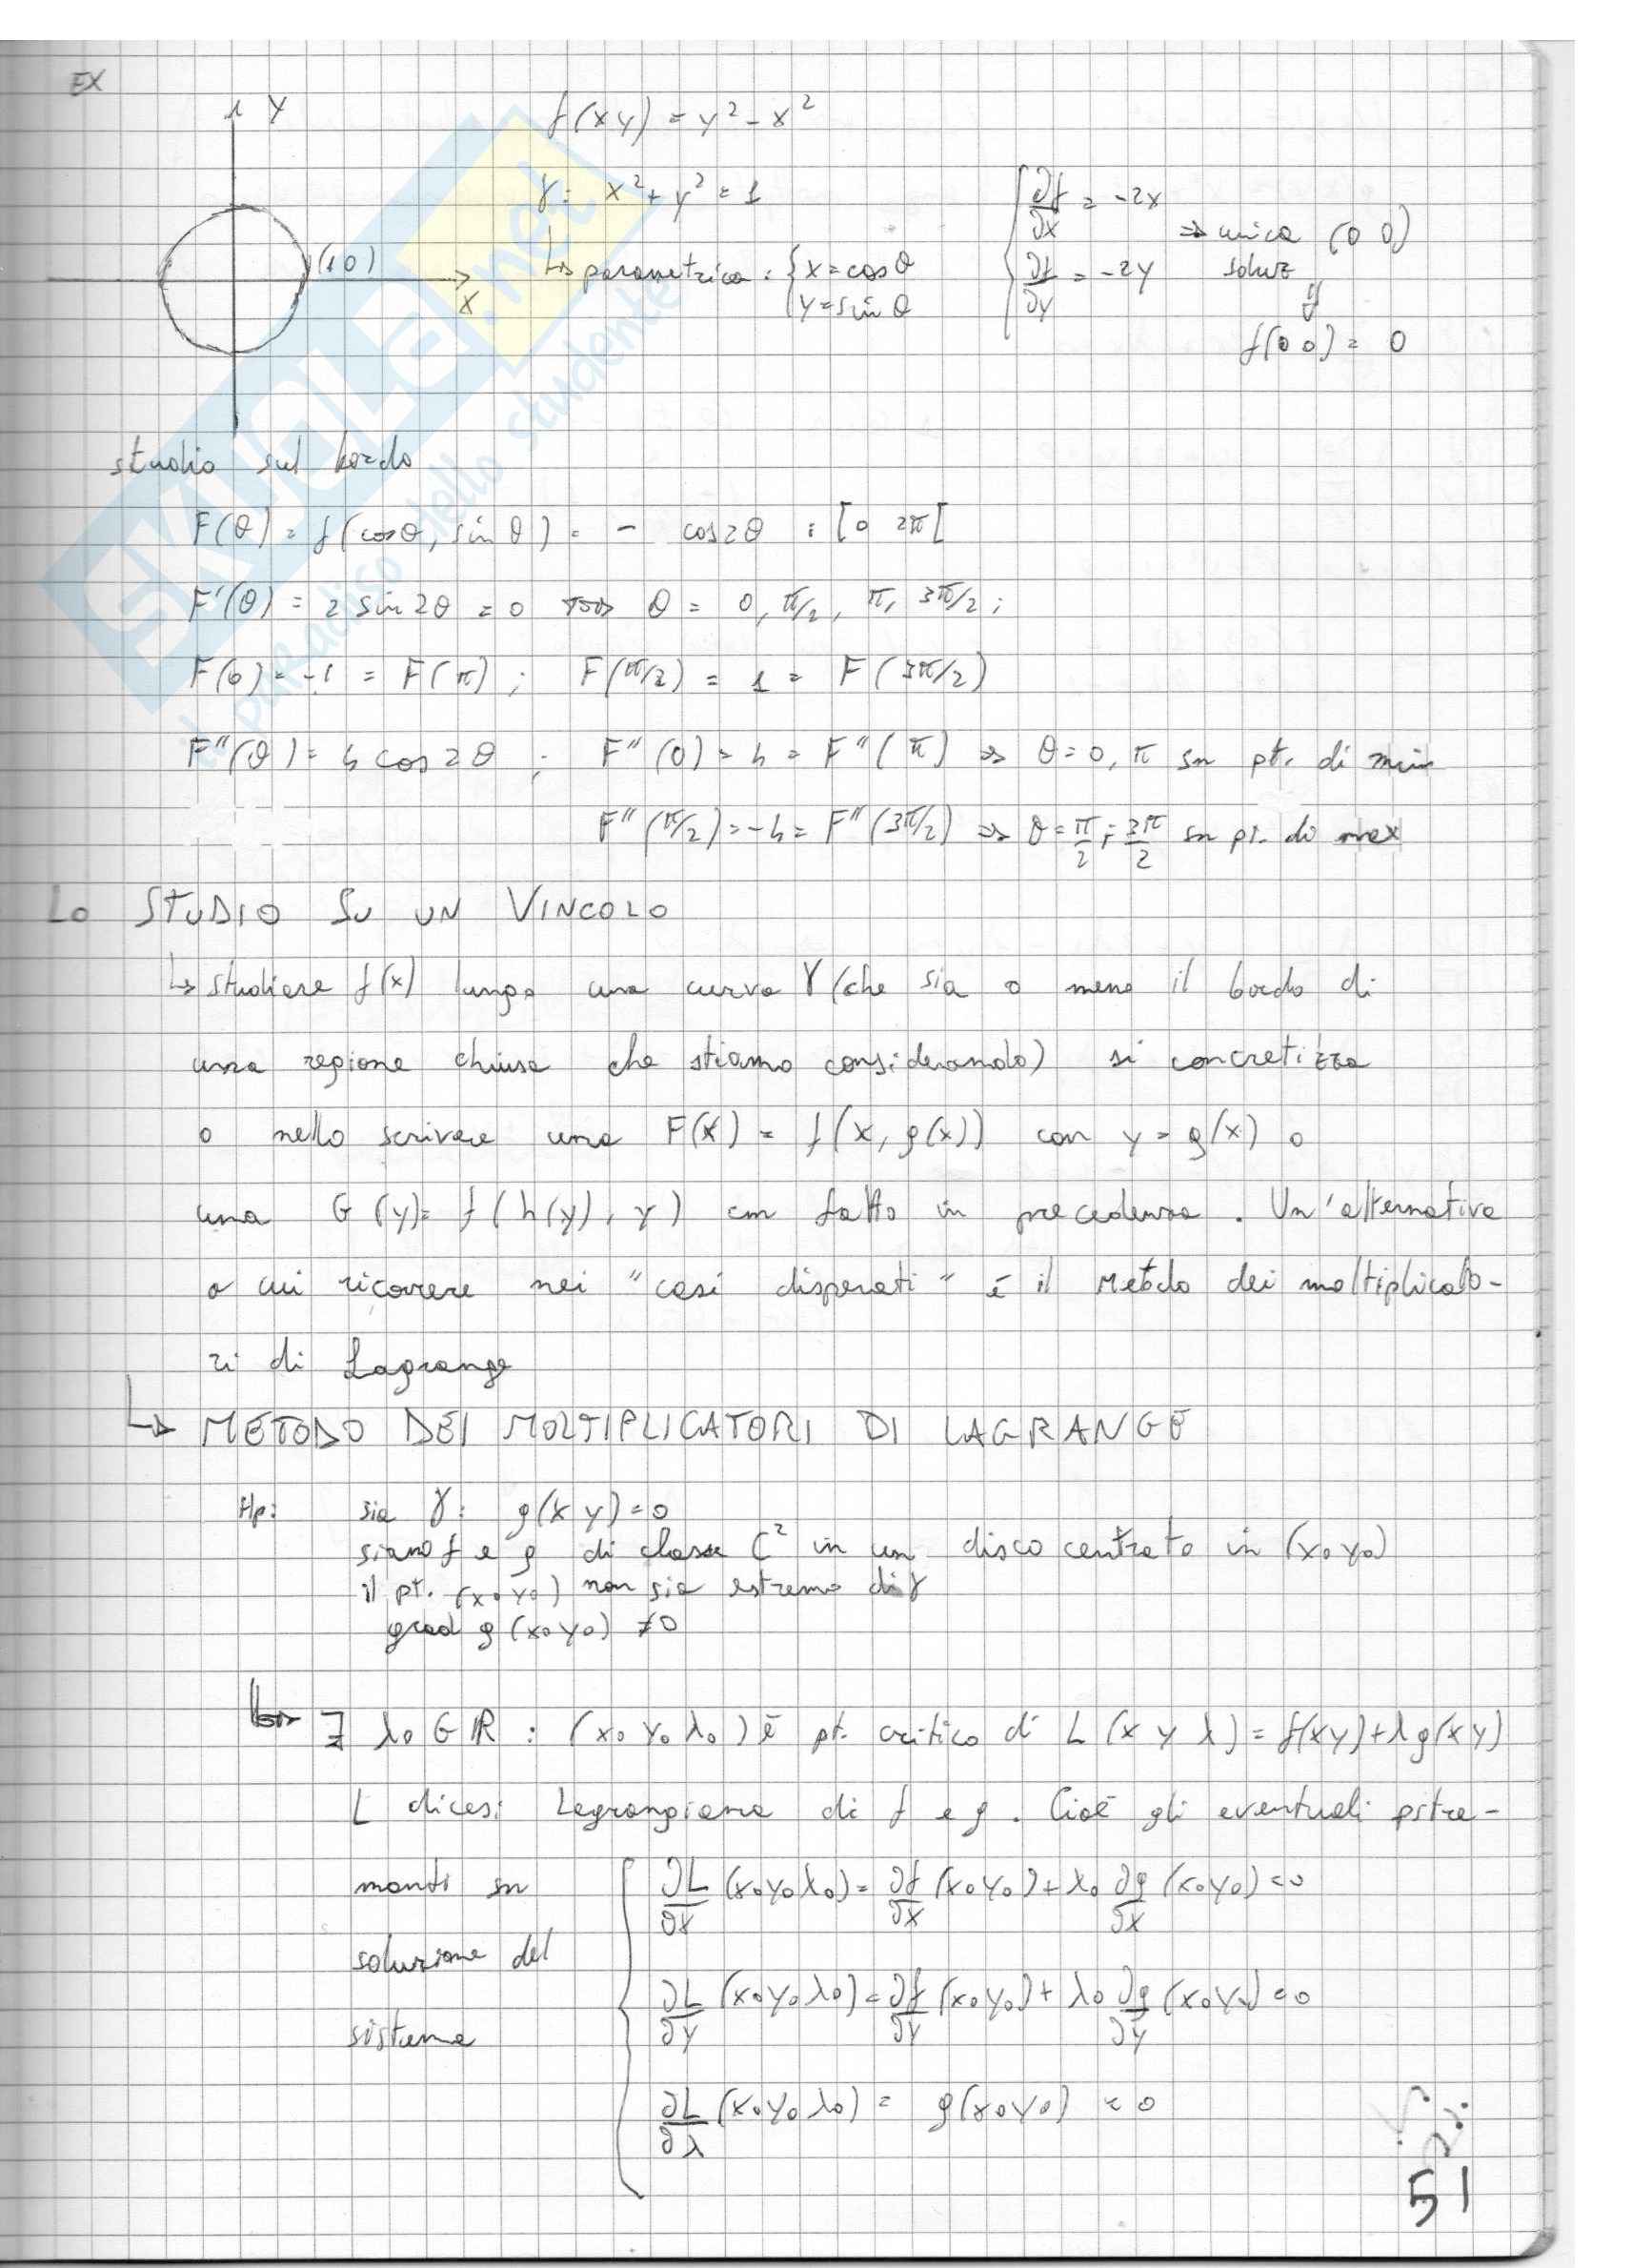 EX
Y
f(x y) = y² - x²
γ: x² + y² = 1
(1 0)
X
↳ parametrica: { x = cos θ
y = sin θ
∂f/∂x = -2x
∂f/∂y = -2y
⇒ unica (0 0)
soluz
⇓
f(0 0) = 0
studio sul bordo
F(θ) = f(cosθ, sin θ) = - cos2θ : [0 2π[
F'(θ) = 2 sin 2θ = 0 θ = 0, π/2, π, 3π/2;
F(0) = -1 = F(π); F(π/2) = 1 = F(3π/2)
F"(θ) = 4 cos 2θ ; F"(0) = 4 = F"(π) ⇒ θ = 0, π sn pt. di min
F"(π/2) = -4 = F"(3π/2) ⇒ θ = π/2 ; 3π/2 sn pt. di max
LO STUDIO SU UN VINCOLO
↳ studiare f(x) lungo una curva γ (che sia o meno il bordo di
una regione chiusa che stiamo considerando) si concretizza
o nello scrivere una F(x) = f(x, g(x)) con y = g(x) o
una G(y) = f(h(y), y) cm fatto in precedenza. Un'alternativa
a cui ricorrere nei "casi disperati" è il Metodo dei moltiplicato-
ri di Lagrange
↳ METODO DEI MOLTIPLICATORI DI LAGRANGE
Hp: sia γ: g(x y) = 0
siano f e g di classe C² in un disco centrato in (x₀ y₀)
il pt. (x₀ y₀) non sia estremo di γ
grad g (x₀ y₀) ≠ 0
∃ λ₀ ∈ ℝ : (x₀ y₀ λ₀) è pt. critico di L (x y λ) = f(x y) + λ g(x y)
L dicesi Lagrangiana di f e g. Cioè gli eventuali pstre-
manti sn
soluzione del
sistema
∂L/∂x (x₀ y₀ λ₀) = ∂f/∂x (x₀ y₀) + λ₀ ∂g/∂x (x₀ y₀) = 0
∂L/∂y (x₀ y₀ λ₀) = ∂f/∂y (x₀ y₀) + λ₀ ∂g/∂y (x₀ y₀) = 0
∂L/∂λ (x₀ y₀ λ₀) = g(x₀ y₀) = 0
51
SKUOLA.net
il paradiso dello studente